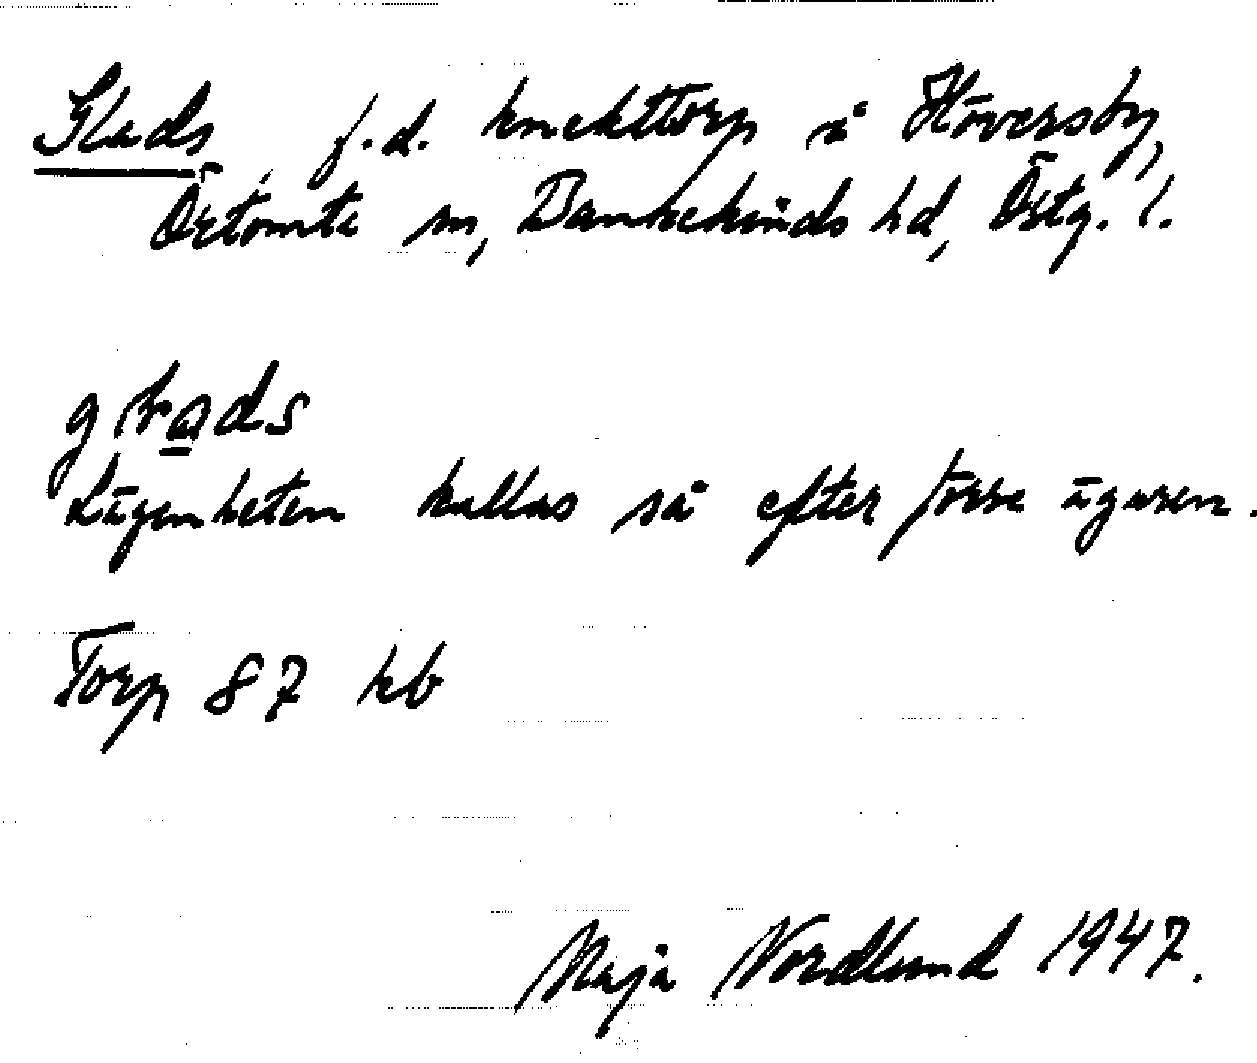 Glads f.d. knekttorp å Höversby,
Örtomta sn, Bankekinds hd, Östg. l.
glads
Lägenheten kallas så efter förre ägaren.
Torp 87 hb
Maja Nordlund 1947.